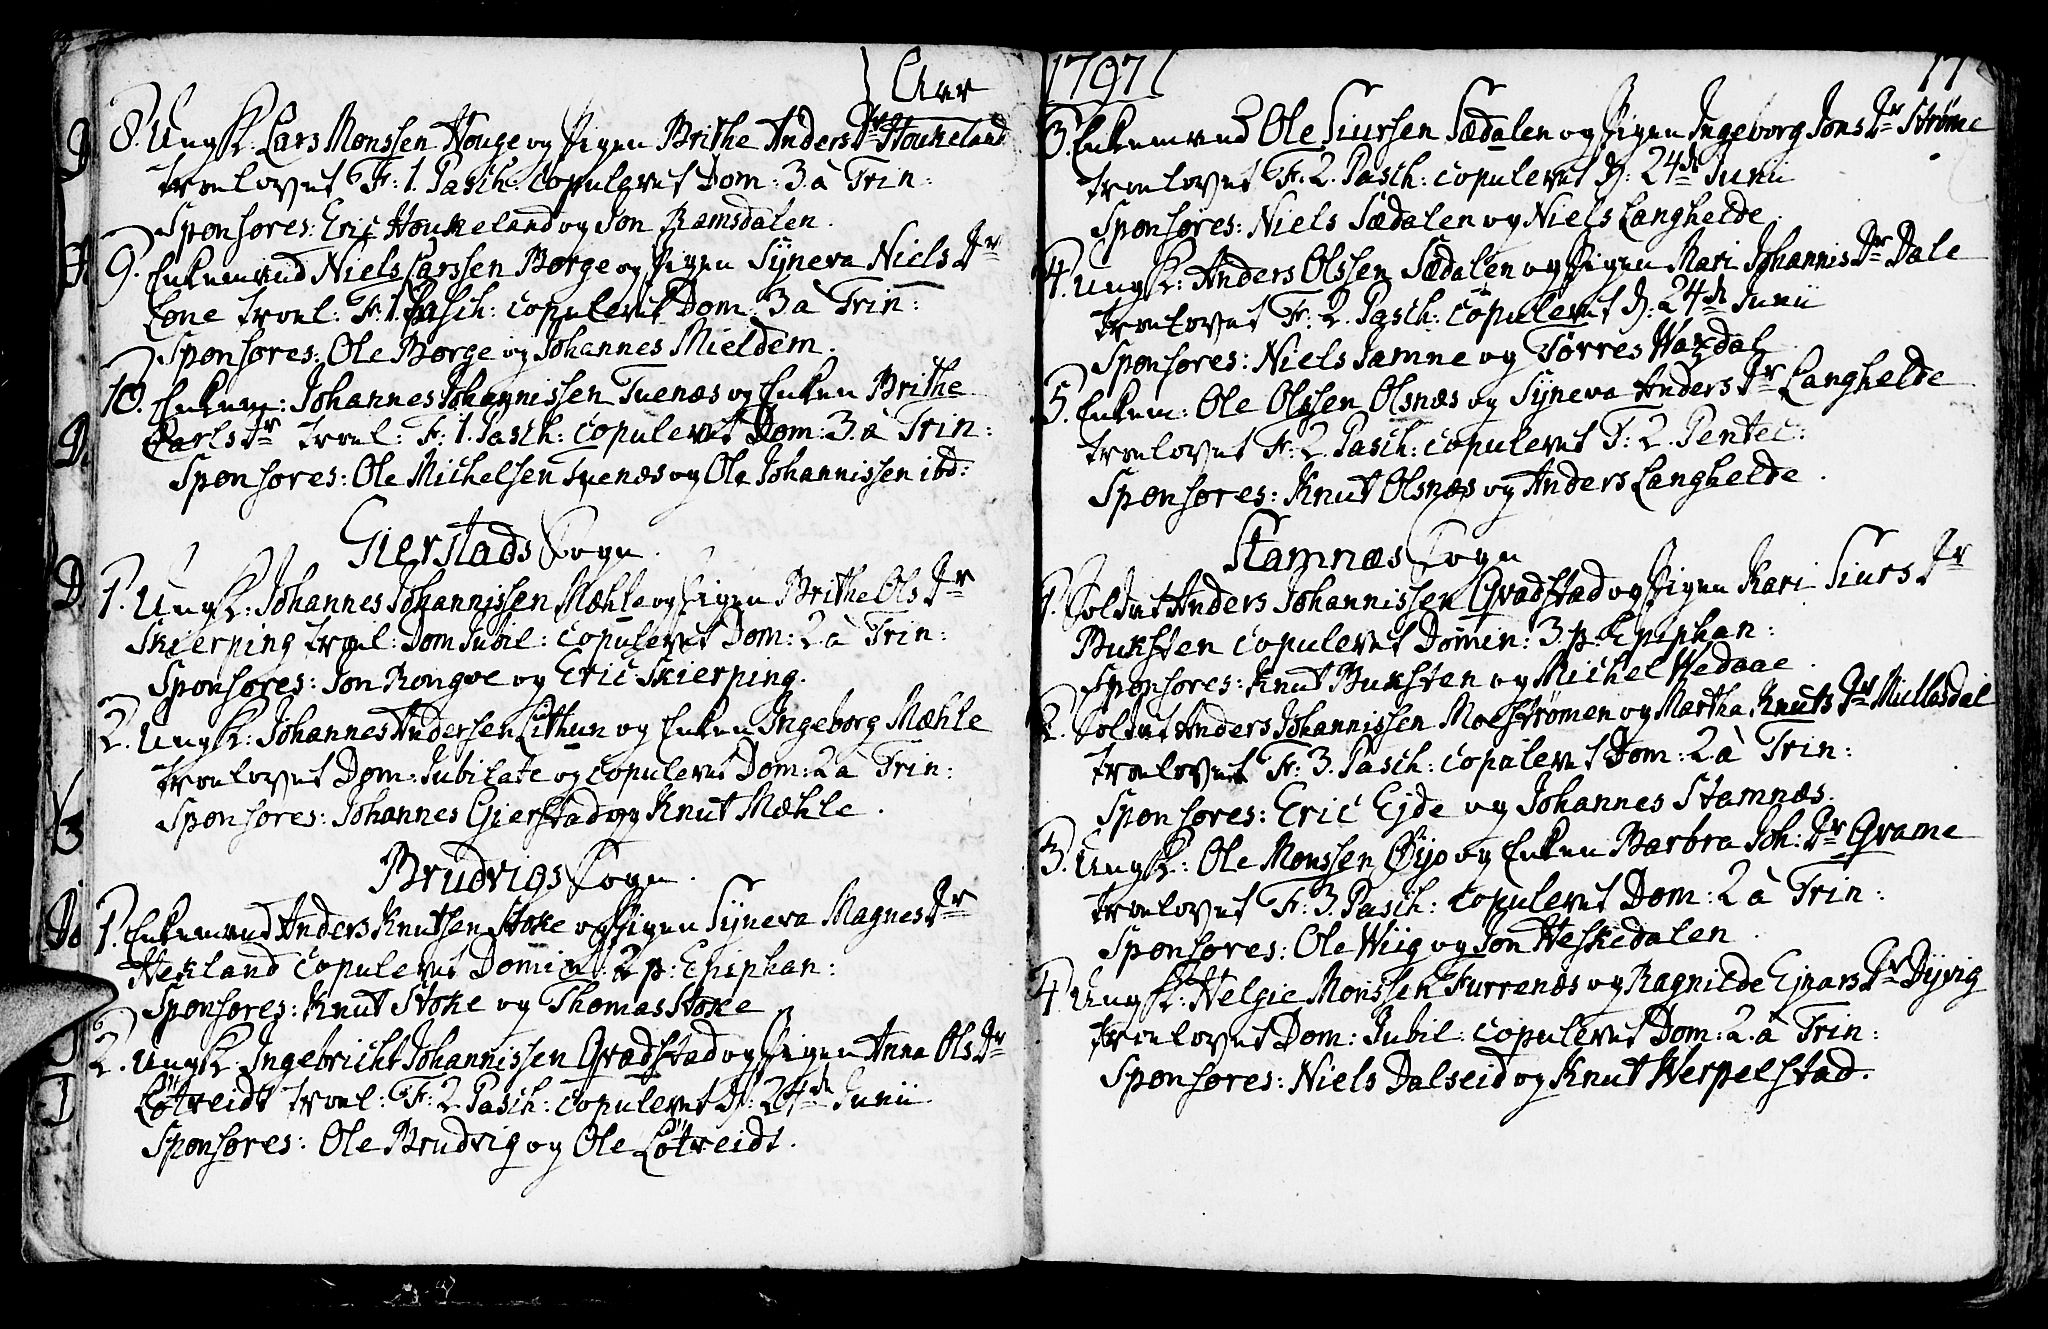 Aar
8. Ungk: Lars Monssen Houge og Pigen Brithe Anders Dr Houkeland
trolovet F: 1. Pasch: copuleret Dom: 3. à Trin:
Sponsores: Eric Houkeland og Jon Ramsdalen.
9. Enkemand Niels Larssen Borge og Pigen Syneva Niels Dr
Lone trol: F: 1. Pasch: copuleret Dom: 3 à Trin:
Sponsores: Ole Borge og Johannes Mieldem.
10. Enkem: Johannes Johannissen Tuenæs og Enken Brithe
Carls Dr trol: F: 1. Pasch: copuleret Dom: 3. à Trin:
Sponsores: Ole Michelsen Tuenæs og Ole Johannissen ibd:
Gierstads Sogn.
1. Ungk: Johannes Johannissen Mæhle og Pigen Brithe Ols Dr
Skierping trol: Dom Jubil: copuleret Dom: 2 à Trin:
Sponsores: Jon Rongve og Eric Skierping.
2. Ungk: Johannes Andersen Lithun og Enken Ingeborg Mæhle
trolovet Dom: Jubilate og copuleret Dom: 2 à Trin:
Sponsores: Johannes Gierstad og Knut Mæhle.
Brudvigs Sogn.
1. Enkemand Anders Knutsen Stoke og Pigen Syneva Magnes Dr
Hekland copuleret Domin: 2 p: Epiphan:
Sponsores: Knut Stoke og Thomas Stoke
2. Ungk: Ingebricht Johannissen Gradstad og Pigen Anna Ols Dr
Løtveidt trol: F: 2 Pasch: copuleret d: 24de Junii
Sponsores: Ole Brudvig og Ole Løtveidt.
1797
17
3. Enkemand Ole Siursen Sædalen og Pigen Ingeborg Jons Dr Strøme
trolovet F. 2. Pasch: copuleret d: 24de Junii
Sponsores: Niels Sædalen og Niels Langhelde.
4. Ungk: Anders Olssen Sædalen og Pigen Mari Johannis Dr Dale
trolovet F: 2. Pasch: copuleret d: 24de Junii
Sponsores: Niels Jamne og Torres Waxdal.
5. Enkem: Ole Olssen Olsnæs og Syneva Anders Dr Langhelde
trolovet F: 2. Pasch: copuleret F: 2. Pentec:
Sponsores: Knut Olsnæs og Anders Langhelde.
Stamnæs Sogn
1. Soldat Anders Johannissen Gradstad og Pigen Kari Siurs Dr
Buksten copuleret Domin: 3. p. Epiphan:
Sponsores: Knut Buksten og Michel Wedaae.
2. Soldat Anders Johannissen Moestrømen og Martha Knuts Dr Millesdal
trolovet F: 3. Pasch: copuleret Dom: 2. à Trin:
Sponsores: Eric Ejde og Johannes Stamnæs.
3. Ungk: Ole Monssen Øyo og Enken Barbra Joh: Dr Grame
trolovet F: 3. Pasch: copuleret Dom: 2 à Trin:
Sponsores: Ole Wiig og Jon Heskedalen.
4. Ungk: Helgie Monssen Furrenæs og Ragnilde Ejnars Dr Dyvig
trolovet Dom: Jubil: copuleret Dom: 2. à Trin:
Sponsores: Niels Dalseid og Knut Werpelstad.